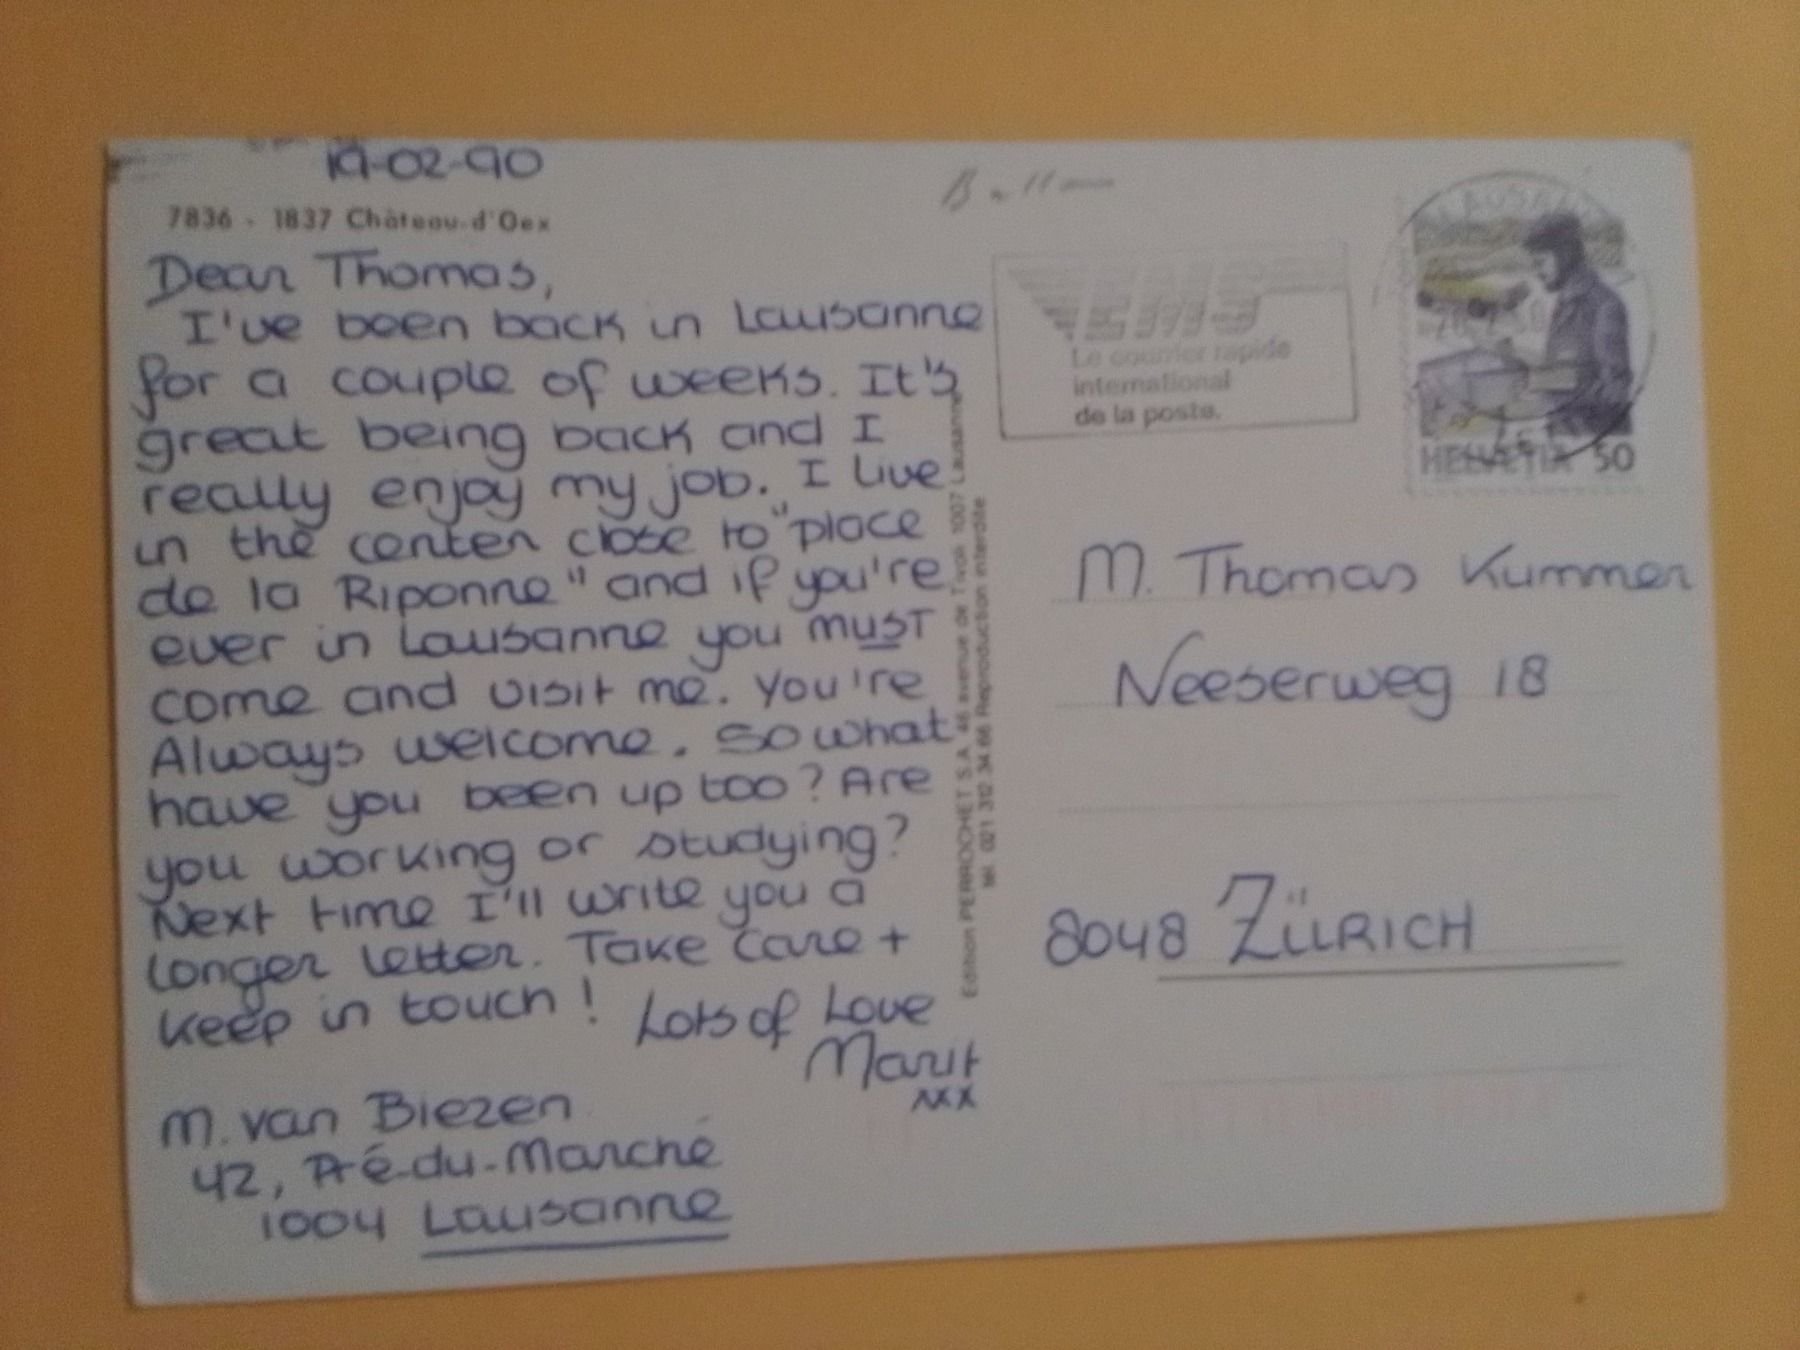 19-02-90
7836 - 1837 Château-d'Oex
Dear Thomas,
I've been back in Lausanne
for a couple of weeks. It's
great being back and I
really enjoy my job. I live
in the center close to "place
de la Riponne" and if you're
ever in Lausanne you must
come and visit me. You're
Always welcome. So what
have you been up too? Are
you working or studying?
Next time I'll write you a
longer letter. Take care +
keep in touch! Lots of Love
Marit
xxx
M. van Biezen
42, Pré-du-Marché
1004 Lausanne
Edition PERROCHET S.A. 46 avenue de Tivoli 1007 Lausanne
tél. 021 312 34 66 Reproduction interdite
EMS
Le courrier rapide
international
de la poste.
LAUSANNE
HELVETIA 50
M. Thomas Kummer
Neeserweg 18
8048 ZÜRICH